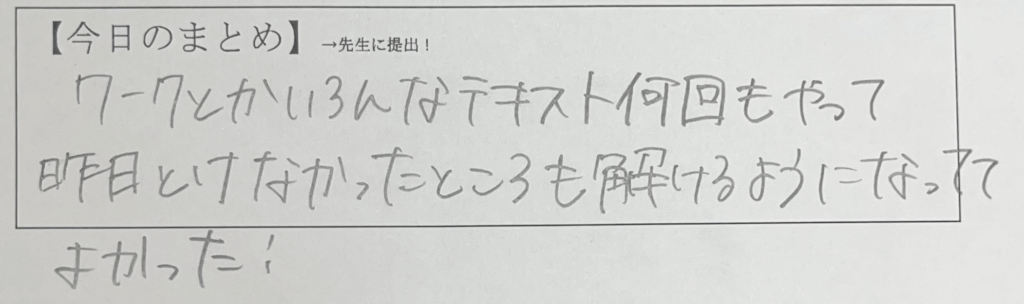 【今日のまとめ】→先生に提出！
ワークとかいろんなテキスト何回もやって
昨日とけなかったところも解けるようになってて
よかった！